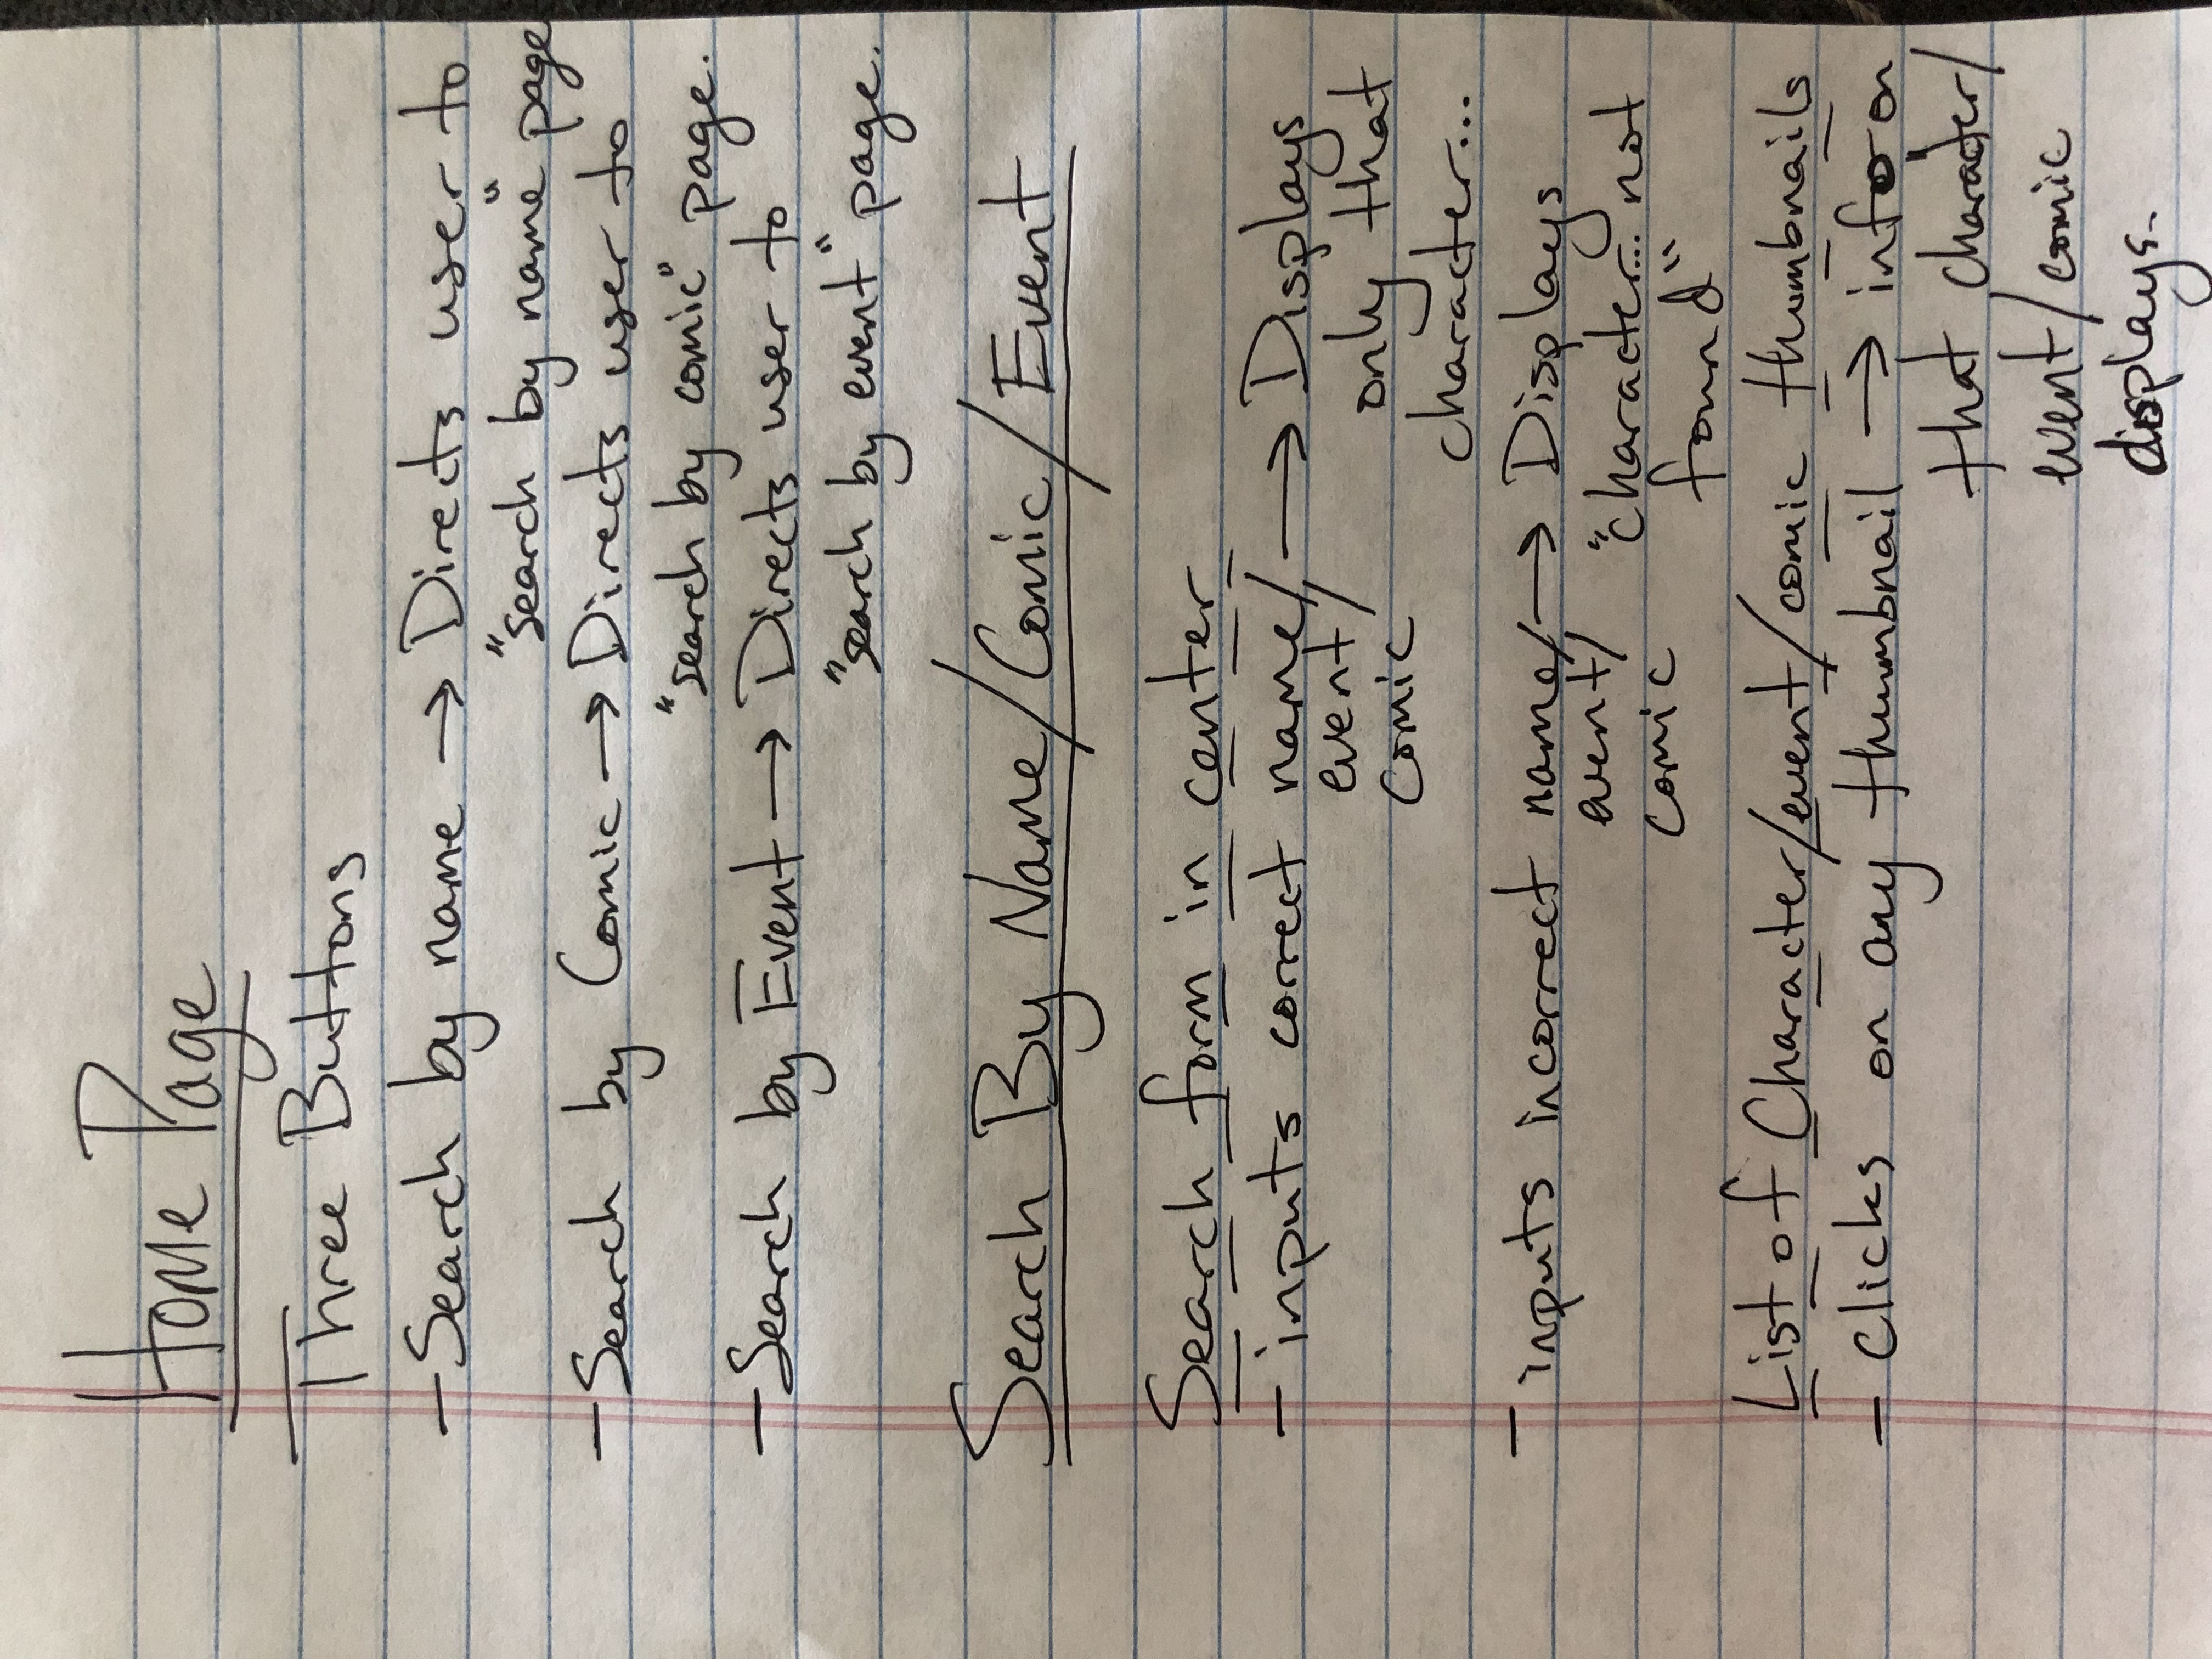 Home Page
Three Buttons
- Search by name → Directs user to
"search by name" page
- Search by Comic → Directs user to
"search by comic" page.
- Search by Event → Directs user to
"search by event" page.
Search By Name/Comic/Event
Search form in center
- inputs correct name/ → Displays
event/ only that
comic character...
- inputs incorrect name/ → Displays
event/ "character... not
comic found"
List of Character/event/comic thumbnails
- clicks on any thumbnail → info on
that character/
event/comic
displays.